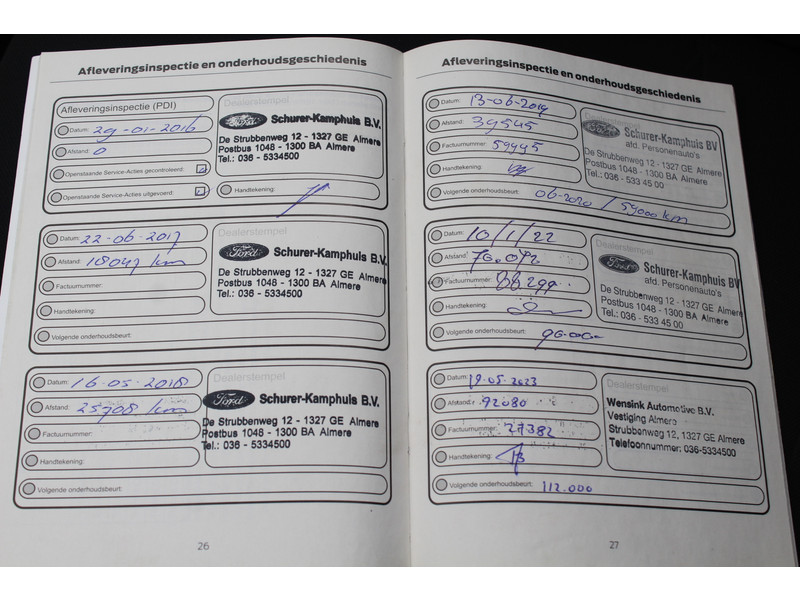 Afleveringsinspectie en onderhoudsgeschiedenis
Afleveringsinspectie (PDI)
Datum: 29-01-2016
Afstand: 0
Openstaande Service-Acties gecontroleerd:
Openstaande Service-Acties uitgevoerd:
Dealerstempel
Ford Schurer-Kamphuis B.V.
De Strubbenweg 12 - 1327 GE Almere
Postbus 1048 - 1300 BA Almere
Tel.: 036 - 5334500
Handtekening:
Datum: 22-06-2017
Afstand: 18047 km
Factuurnummer:
Handtekening:
Volgende onderhoudsbeurt:
Dealerstempel
Ford Schurer-Kamphuis B.V.
De Strubbenweg 12 - 1327 GE Almere
Postbus 1048 - 1300 BA Almere
Tel.: 036 - 5334500
Datum: 16-05-2018
Afstand: 25708 km
Factuurnummer:
Handtekening:
Volgende onderhoudsbeurt:
Dealerstempel
Ford Schurer-Kamphuis B.V.
De Strubbenweg 12 - 1327 GE Almere
Postbus 1048 - 1300 BA Almere
Tel.: 036 - 5334500
26
Afleveringsinspectie en onderhoudsgeschiedenis
Datum: 13-06-2019
Afstand: 39545
Factuurnummer: 59445
Handtekening:
Volgende onderhoudsbeurt: 06-2020 / 59000 km
Dealerstempel
Ford Schurer-Kamphuis BV
afd. Personenauto's
De Strubbenweg 12 - 1327 GE Almere
Postbus 1048 - 1300 BA Almere
Tel.: 036 - 533 45 00
Datum: 10/1/22
Afstand: 70.072
Factuurnummer: 86299
Handtekening:
Volgende onderhoudsbeurt: 90.000
Dealerstempel
Ford Schurer-Kamphuis BV
afd. Personenauto's
De Strubbenweg 12 - 1327 GE Almere
Postbus 1048 - 1300 BA Almere
Tel.: 036 - 533 45 00
Datum: 19.05.2023
Afstand: 92080
Factuurnummer: 27382
Handtekening:
Volgende onderhoudsbeurt: 112.000
Dealerstempel
Wensink Automotive B.V.
Vestiging Almere
Strubbenweg 12, 1327 GE Almere
Telefoonnummer: 036-5334500
27